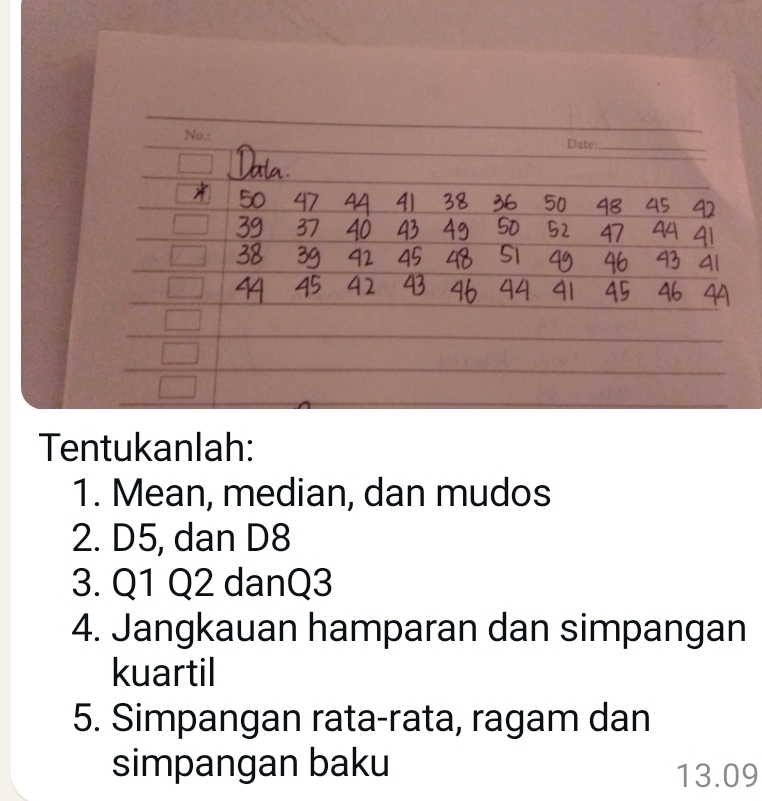 No.:
Date:
Data.
* 50 47 44 41 38 36 50 48 45 42
39 37 40 43 49 50 52 47 44 41
38 39 42 45 48 51 49 46 43 41
44 45 42 43 46 44 41 45 46 44
Tentukanlah:
1. Mean, median, dan mudos
2. D5, dan D8
3. Q1 Q2 danQ3
4. Jangkauan hamparan dan simpangan
kuartil
5. Simpangan rata-rata, ragam dan
simpangan baku
13.09